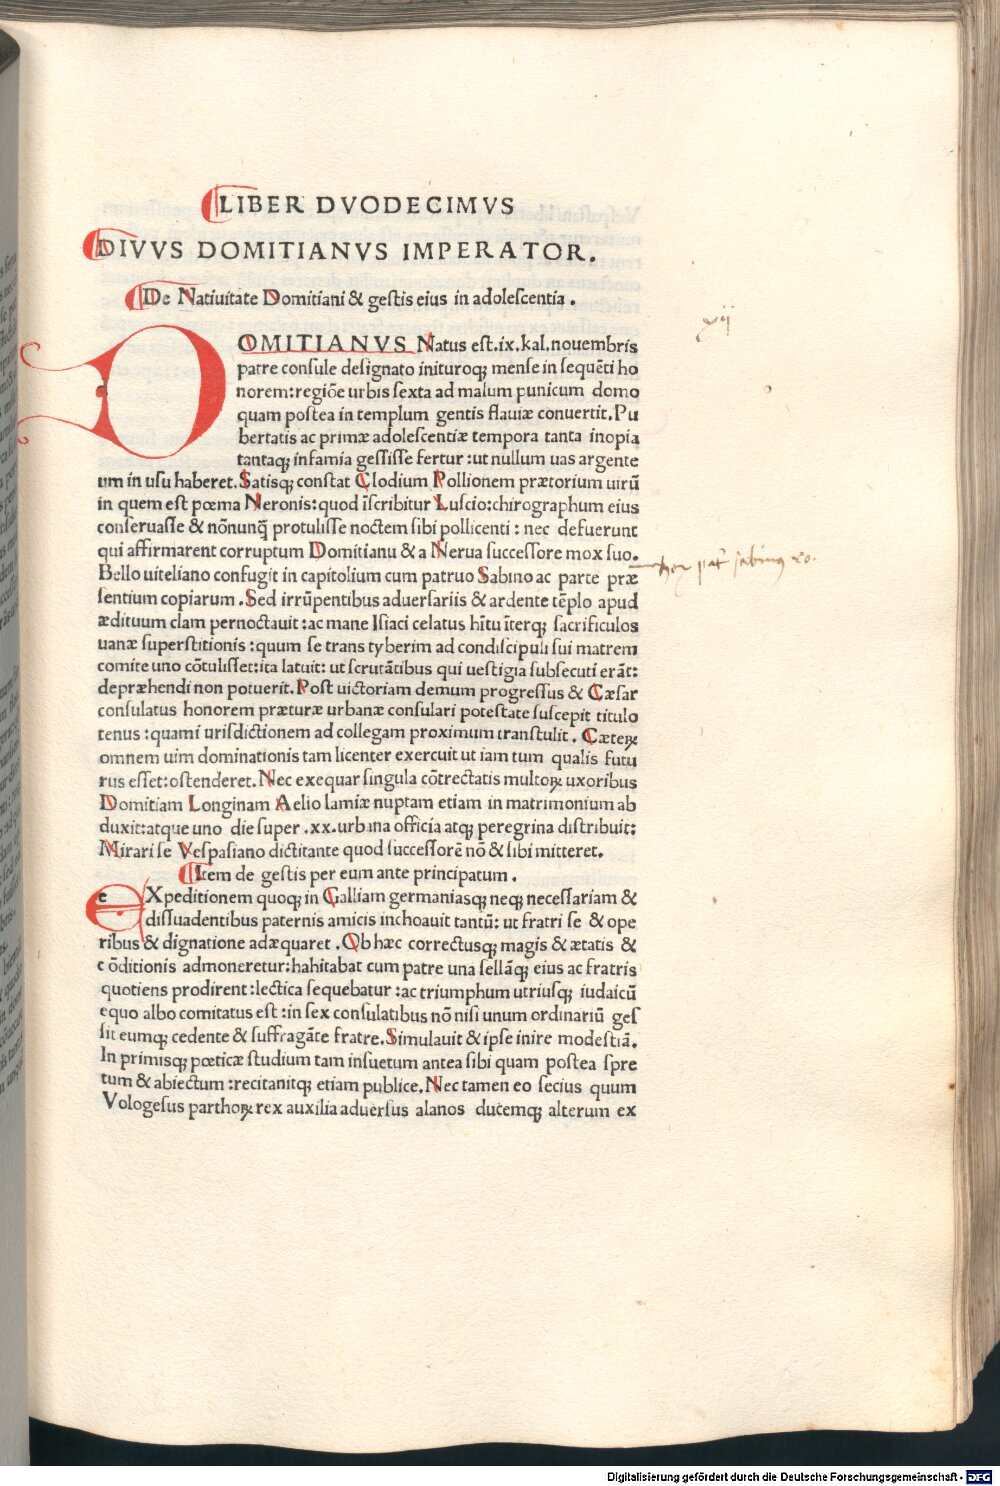 LIBER DVODECIMVS
DIVVS DOMITIANVS IMPERATOR.
De Natiuitate Domitiani & gestis eius in adolescentia.
DOMITIANVS Natus est.ix.kal.nouembris
patre consule designato inituroq; mense in sequēti ho
norem:regiōe urbis sexta ad malum punicum domo
quam postea in templum gentis flauiæ conuertit.Pu
bertatis ac primæ adolescentiæ tempora tanta inopia
tantaq; infamia gessisse fertur:ut nullum uas argente
um in usu haberet.Satisq; constat Clodium Pollionem prætorium uirū
in quem est poema Neronis:quod īscribitur Luscio:chirographum eius
conseruasse & nōnunq̄ protulisse noctem sibi pollicenti: nec defuerunt
qui affirmarent corruptum Domitianu & a Nerua successore mox suo.
Bello uiteliano confugit in capitolium cum patruo Sabino ac parte præ
sentium copiarum.Sed irrūpentibus aduersariis & ardente tēplo apud
ædituum clam pernoctauit:ac mane Isiaci celatus hītu īterq; sacrificulos
uanæ superstitionis:quum se trans tyberim ad condiscipuli sui matrem
comite uno cōtulisset:ita latuit: ut scrutātibus qui uestigia subsecuti erāt:
depræhendi non potuerit.Post uictoriam demum progressus & Cæsar
consulatus honorem præturæ urbanæ consulari potestate suscepit titulo
tenus:quami urisdictionem ad collegam proximum transtulit. Cæteꝝ
omnem uim dominationis tam licenter exercuit ut iam tum qualis futu
rus esset:ostenderet.Nec exequar singula cōtrectatis multoꝝ uxoribus
Domitiam Longinam Aelio lamiæ nuptam etiam in matrimonium ab
duxit:atque uno die super.xx.urbana officia atq; peregrina distribuit:
Mirari se Vespasiano dictitante quod successorē nō & sibi mitteret.
Item de gestis per eum ante principatum.
eXpeditionem quoq; in Galliam germaniasq; neq; necessariam &
dissuadentibus paternis amicis inchoauit tantū: ut fratri se & ope
ribus & dignatione adæquaret.Ob hæc correctusq; magis & ætatis &
cōditionis admoneretur:hahitabat cum patre una sellāq; eius ac fratris
quotiens prodirent:lectica sequebatur:ac triumphum utriusq; iudaicū
equo albo comitatus est:in sex consulatibus nō nisi unum ordinariū ges
sit eumq; cedente & suffragāte fratre.Simulauit & ipse inire modestiā.
In primisq; poeticæ studium tam insuetum antea sibi quam postea spre
tum & abiectum:recitanitq; etiam publice.Nec tamen eo secius quum
Vologesus parthoꝝ rex auxilia aduersus alanos ducemq; alterum ex
xij
Digitalisierung gefördert durch die Deutsche Forschungsgemeinschaft - DFG